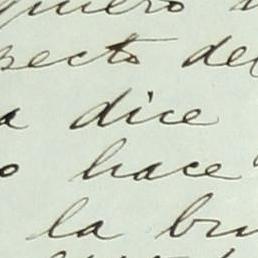 quiero
secto de
a dice
o hace
la bru